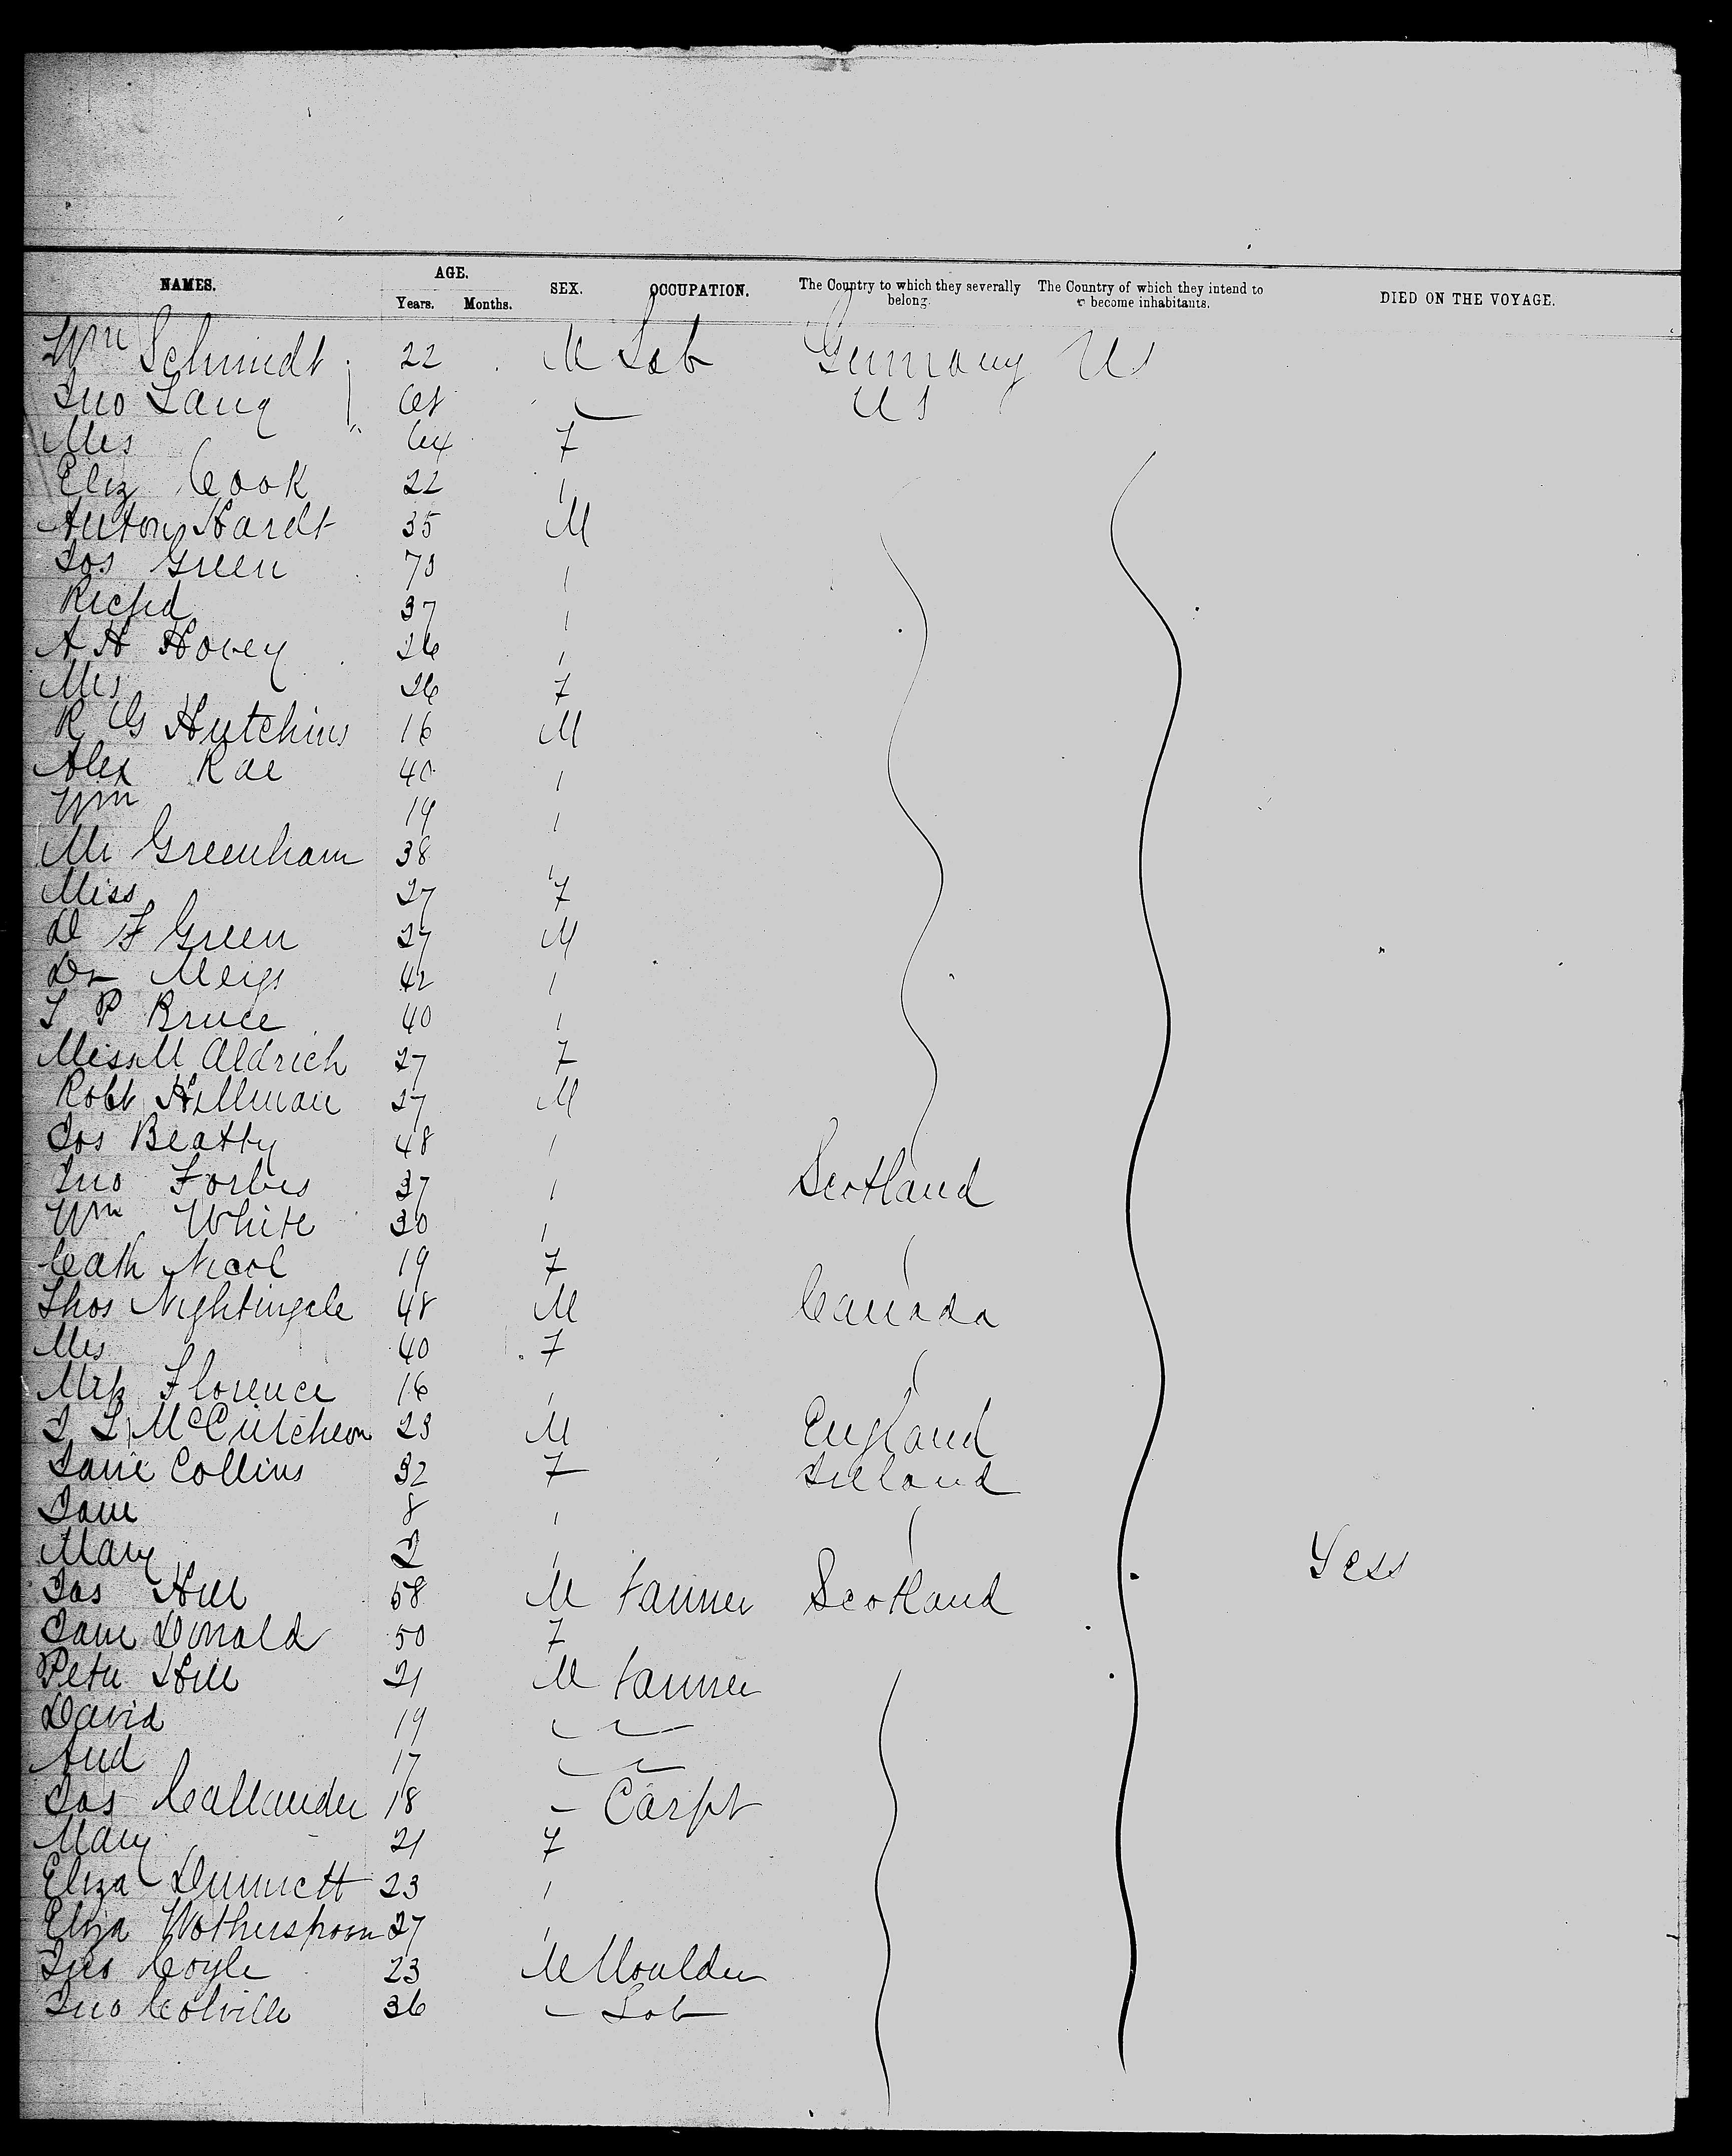 NAMES. AGE. SEX. OCCUPATION. The Country to which they severally belong. The Country of which they intend to become inhabitants. DIED ON THE VOYAGE.
Years. Months.
Wm Schmidt 22 M Lab Germany US
Jno Lang US
Mrs 64 F
Eliz Cook 22
Anton Hardt 35 M
Jos Green 73
Richd 37
A H Hovey 26
Mrs 26 F
R G Hutchins 16 M
Alex Rae 40
Wm 19
Mr Greenham 38
Miss 27 F
D F Green 27 M
Dr Meigs 42
S P Bruce 40
Miss M Aldrich 27 F
Robt Hillman 27 M
Jos Beatty 48
Jno Forbes 37 Scotland
Wm White 30
Cath Nicol 19 F
Thos Nightingale 48 M Canada
Mrs 40 F
Florence 16
McCutcheon 23 M England
Jane Collins 32 F Ireland
Jane 8
Mary 2 Yess
Jas Hill 58 M tanner Scotland
Jane Donald 50 F
Peter Hill 21 M tanner
David 19
And 17
Jas Callander 18 Carpt
Mary 21 F
Eliza Dunnett 23
Eliza Wotherspoon 27
Jno Coyle 23 M Moulder
Jno Colville 36 Lab